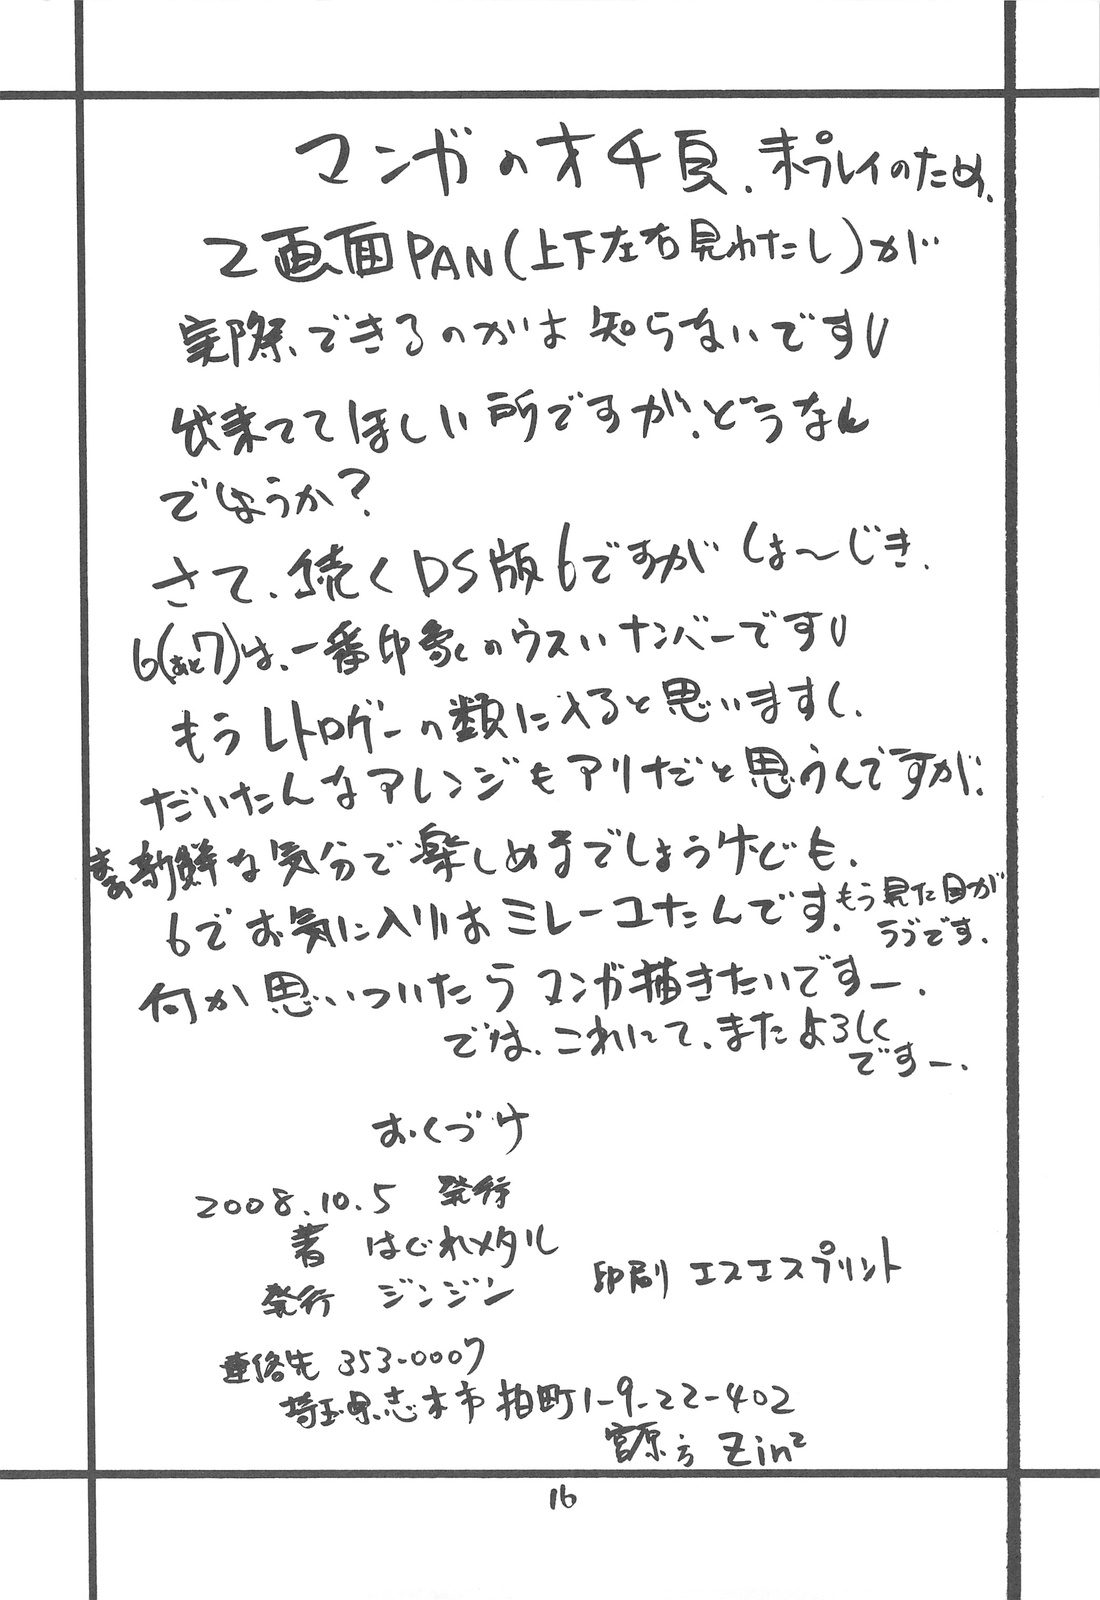 マンガのオチ頁、未プレイのため、
2画面PAN(上下左右見わたし)が
実際、できるのかは知らないですU
出来ててほしい所ですが、どうなん
でしょうか?
さて、続くDS版6ですが しょ〜じき、
6(あと7)は、一番印象のウスいナンバーですU
もうレトロゲーの類に入ると思いますし、
だいたんなアレンジもアリだと思うんですが、
まあ新鮮な気分で楽しめるでしょうけども、
6でお気に入りはミレーユたんです。もう見た目が
ラブです。
何か思いついたらマンガ描きたいですー。
では、これにて、またよろしく
ですー。
おくづけ
2008.10.5 発行
著 はぐれメタル
発行 ジンジン
印刷 エスエスプリント
連絡先 353-0007
埼玉県志木市柏町1-9-22-402
宮原方 Zin²
16